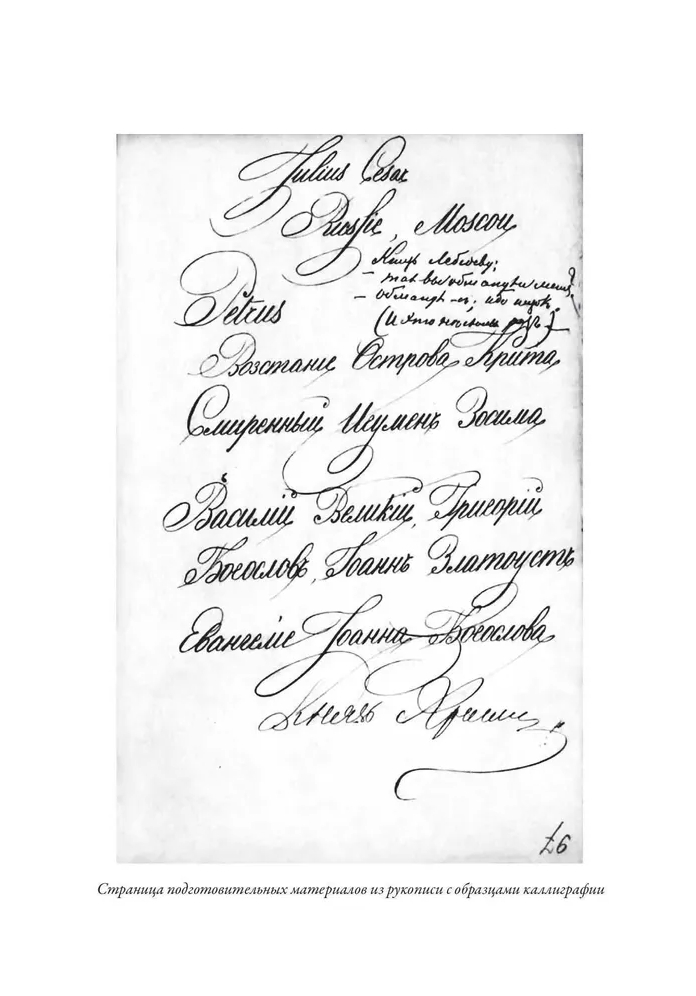 Julius Cesar
Russie, Moscou
Князь Лебедеву:
– так вы обманули меня?
– обманул
(И
Petrus
Возстаніе Острова Крита
Смиренный Игуменъ Зосима
Василій Великій, Григорій
Богословъ, Іоаннъ Златоустъ
Евангеліе Іоанна Богослова
Князь
46
Страница подготовительных материалов из рукописи с образцами каллиграфии